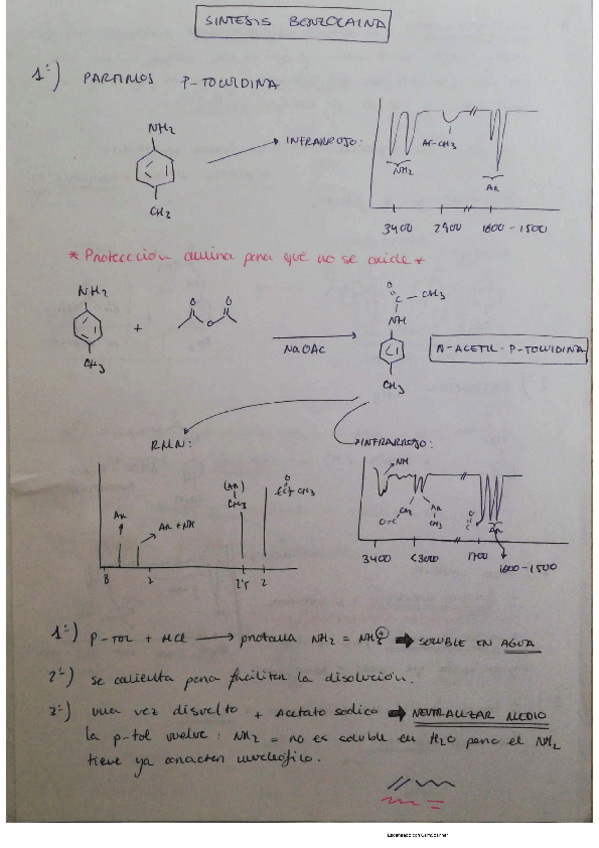 SINTESIS BENZOCAINA
1º) PARTIMOS P-TOLUIDINA
NH2
CH3
INFRARROJO:
NH2
Ar-CH3
Ar
3400 2900 1600-1500
* Protección amina para que no se oxide *
NH2
CH3
+
O O
O
NaOAc
O
C - CH3
NH
CH3
N-ACETIL-P-TOLUIDINA
RMN:
Ar
Ar + NH
(Ar)
CH3
O
C CH3
8 7 2'5 2
INFRARROJO:
NH
O=C
CH3
Ar
CH3
O
C
Ar
3400 <3000 1700
1600-1500
1º) P-TOL + HCl → protona NH2 = NH3 + ⇒ SOLUBLE EN AGUA
2º) se calienta para facilitar la disolución.
3º) una vez disuelto + Acetato sodico ⇒ NEUTRALIZAR MEDIO
la p-tol vuelve: NH2 = no es soluble en H2O pero el NH2
tiene ya caracter nucleófilo.
Escaneado con CamScanner